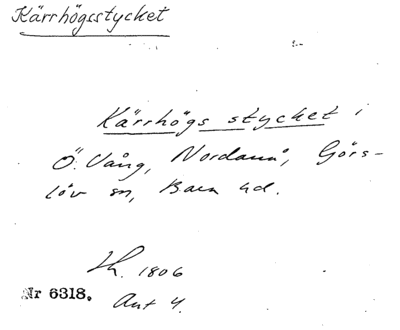 Kärrhögsstycket
Kärrhögs stycket i
Ö. Vång, Nordanå, Görs-
löv sn, Bara hd.
Lh. 1806
Nr 6318. Akt 4.